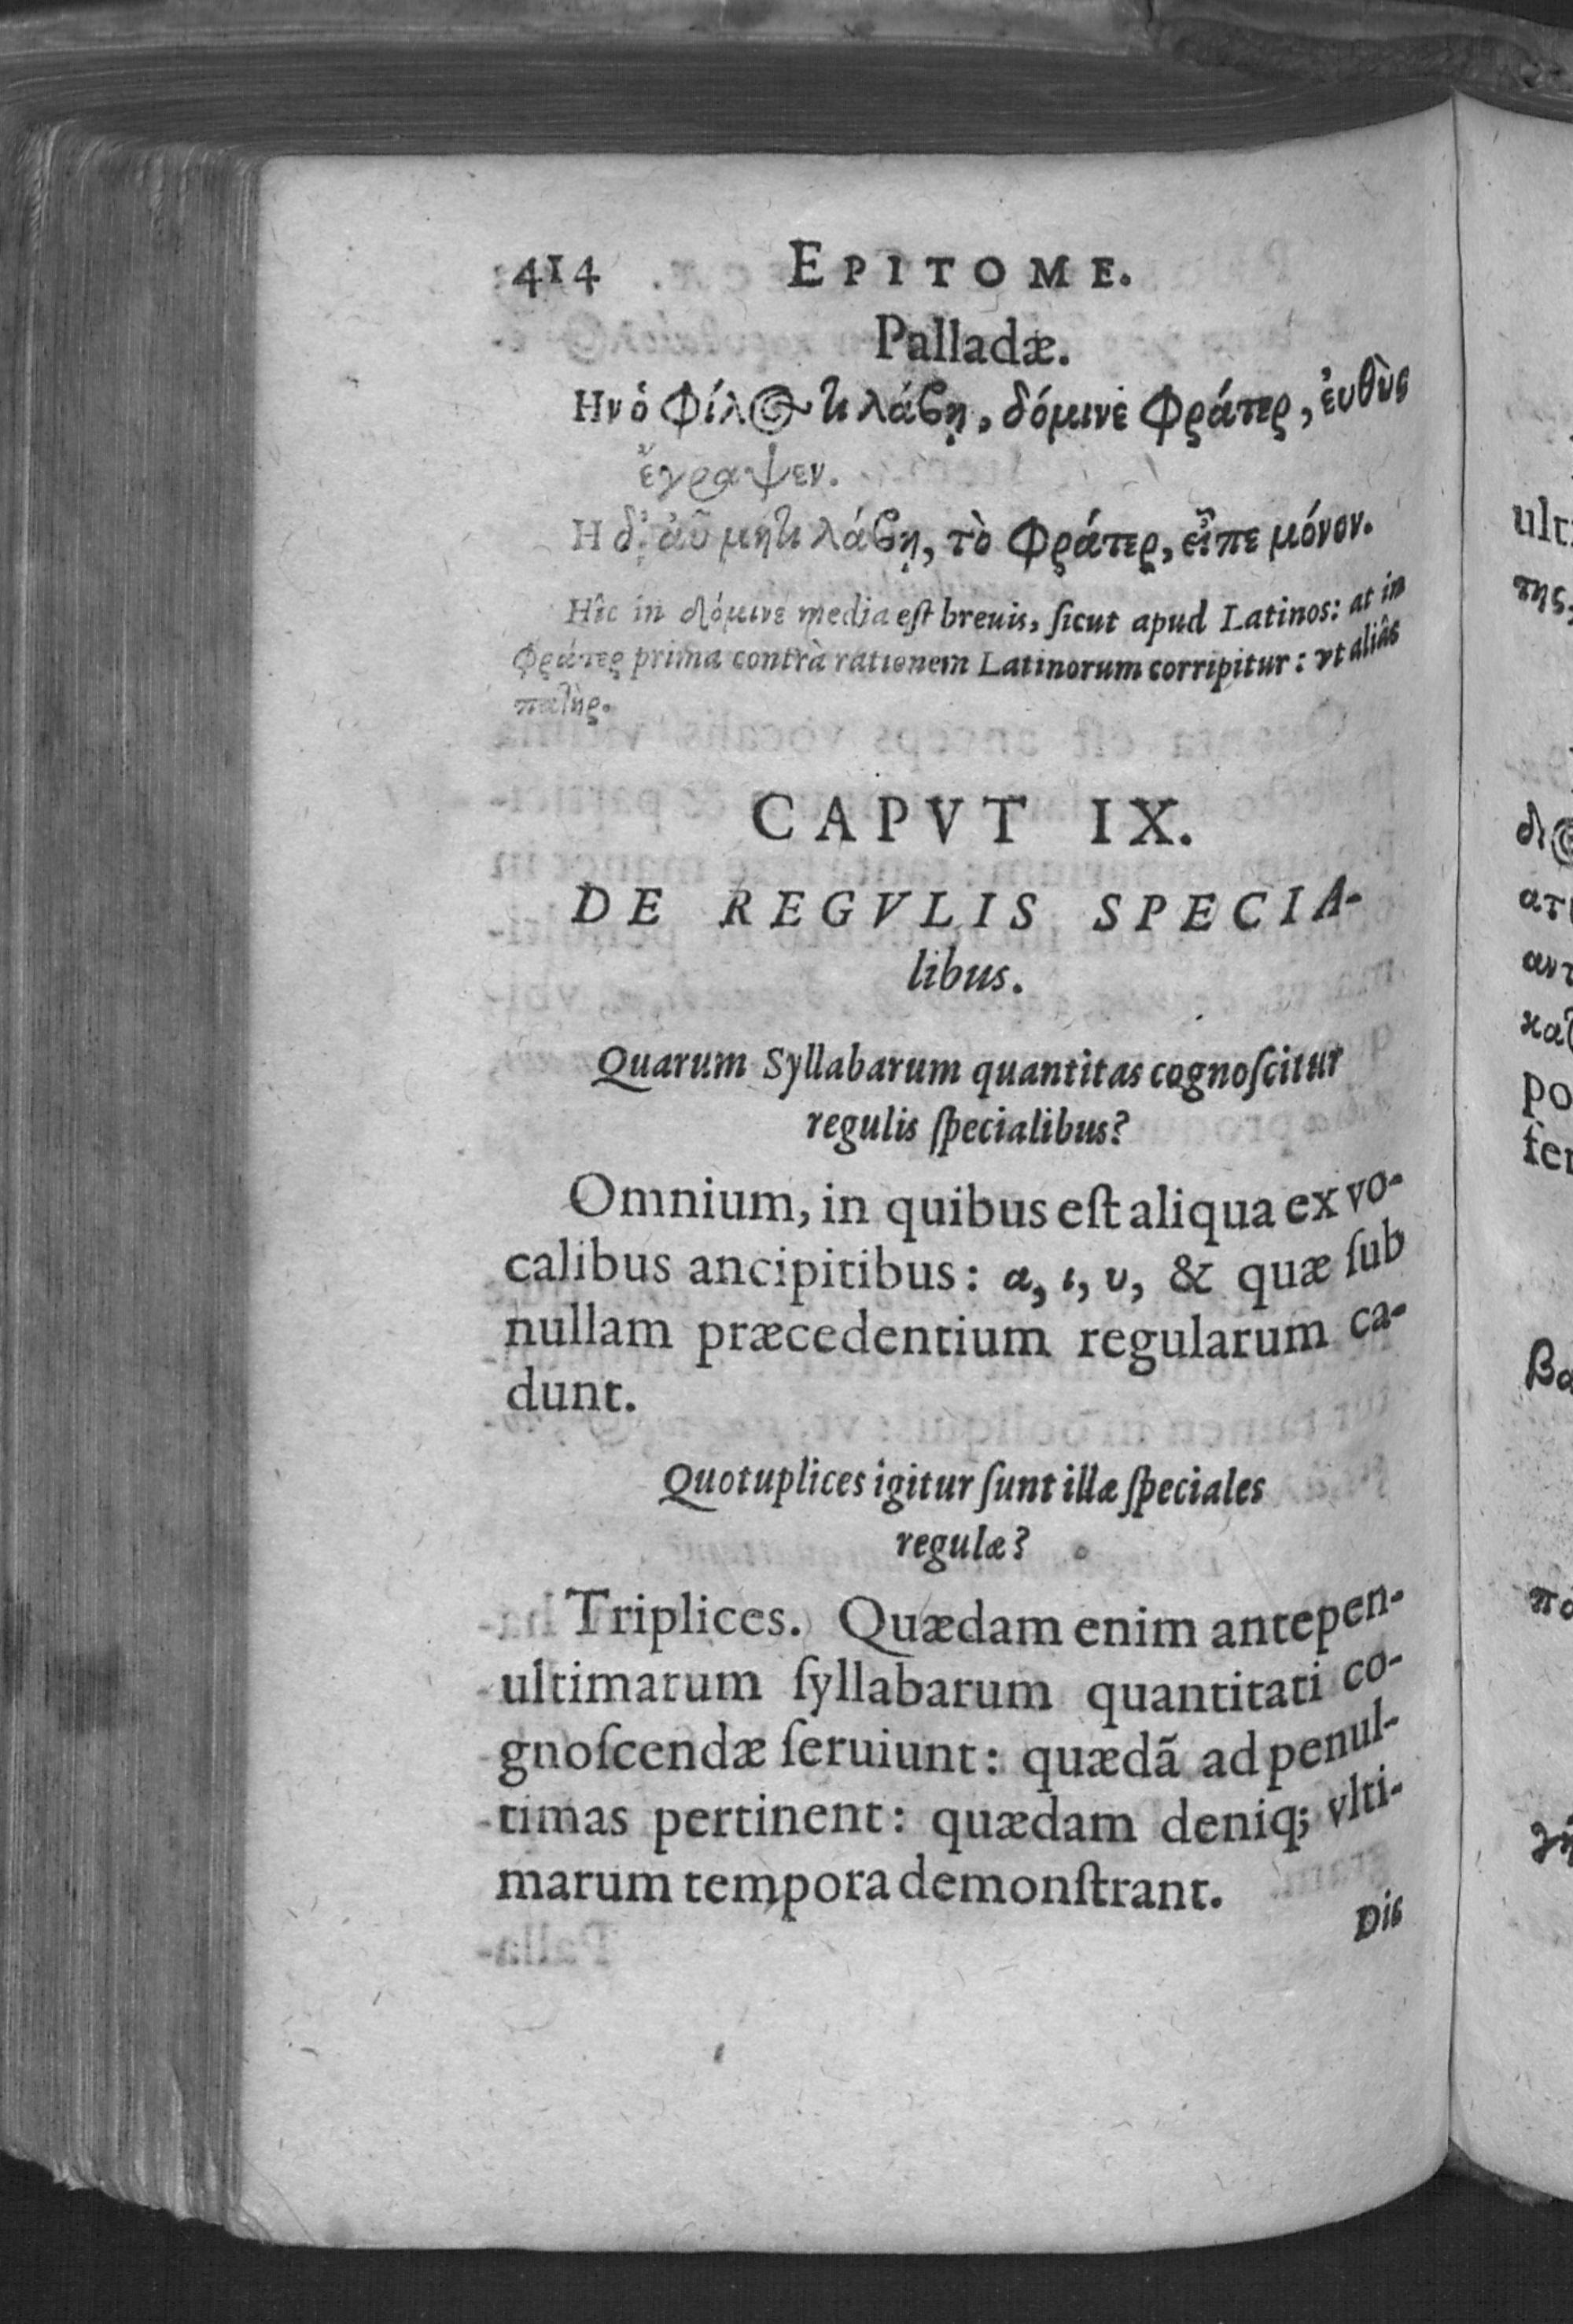 414 EPITOME.
Palladæ.
Ην ὁ φίλος τι λάβῃ, δόμινε φράτερ, ἐυθὺς
ἔγραψεν.
Η δ' ἀῦ μή τι λάβῃ, τὸ φράτερ, εἶπε μόνον.
Hîc in δόμινε media eſt breuis, ſicut apud Latinos: at in
φράτερ prima contrà rationem Latinorum corripitur: vt aliâs
πατὴρ.
CAPVT IX.
DE REGVLIS SPECIA-
libus.
Quarum Syllabarum quantitas cognoſcitur
regulis ſpecialibus?
Omnium, in quibus eſt aliqua ex vo-
calibus ancipitibus: α, ι, υ, & quæ ſub
nullam præcedentium regularum ca-
dunt.
Quotuplices igitur ſunt illæ ſpeciales
regulæ?
Triplices. Quædam enim antepen-
ultimarum ſyllabarum quantitati co-
gnoſcendæ ſeruiunt: quædã ad penul-
timas pertinent: quædam deniq; vlti-
marum tempora demonſtrant.
Dis